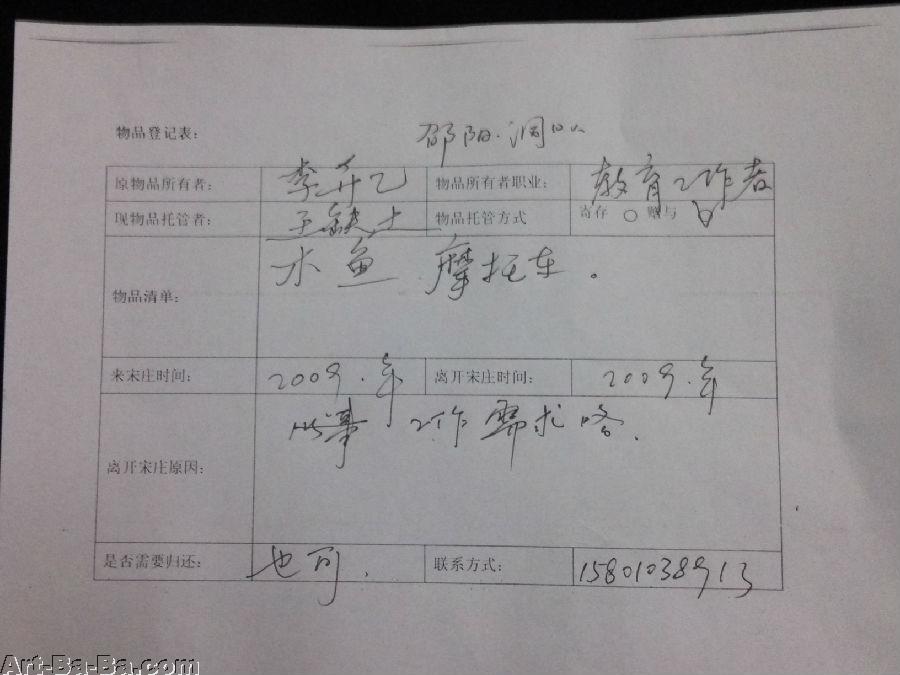 物品登记表: 邵阳·洞口
原物品所有者: 李升乙 物品所有者职业: 教育工作者
现物品托管者: 王铁士 物品托管方式 寄存 ○ 赠与
物品清单: 木鱼 摩托车。
来宋庄时间: 2009.年 离开宋庄时间: 2009.年
离开宋庄原因: 工作需求
是否需要归还: 也可. 联系方式: 15801038913
Art-Ba-Ba.com